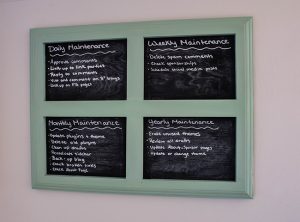 Daily Maintenance
- Approve comments
- Link up to link parties
- Reply to comments
- Visit and comment on "8" blogs
- Link up to FB pages
Weekly Maintenance
- Delete Spam comments
- Check sponsorships
- Schedule social media posts
Monthly Maintenance
- Update plugins & theme
- Delete old plugins
- Clean up drafts
- Broadcast sidebar
- Back-up blog
- Check broken links
- Check About Page
Yearly Maintenance
- unused themes
- Review all drafts
- Update About/Sponsor pages
- Update or change theme